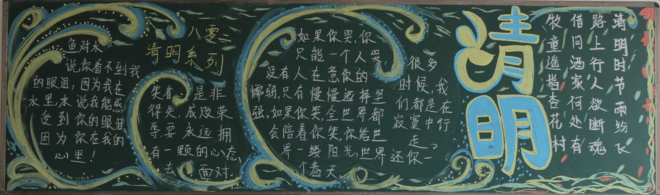 鱼对水
说你看不到我
的眼泪，因为我在
水里，水说我能感
受到你的眼泪
因为你在我的
心里！
八零二
清明系列
失者，是非
得失，成败荣
辱，永远拥
有一颗的心态
去面对。
如果你哭，你
只能一个人哭，
没有人在意你的
懦弱，只有慢慢选择坚
强，如果你笑，全世界都
会陪着你笑，你给世
界一缕阳光，世界还你一
个春天
很多
时候，我
们都是在
寂寞中行
走
清明
清明时节雨纷飞
路上行人欲断魂
借问酒家何处有
牧童遥指杏花村